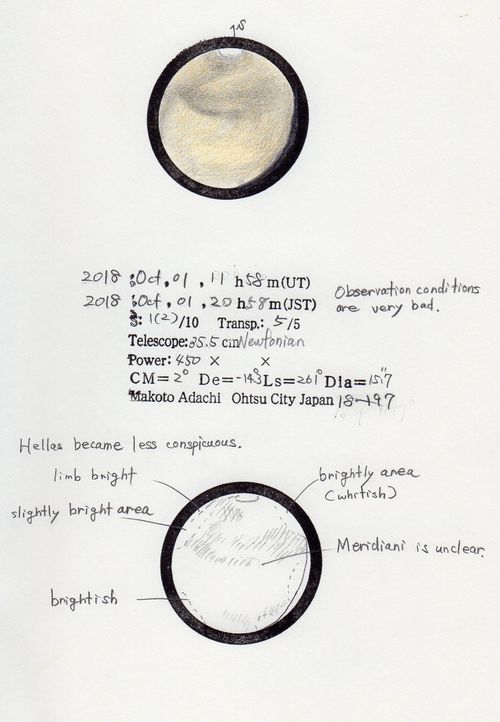 2018 Oct, 01, 11 h 58 m (UT)
2018 Oct, 01, 20 h 58 m (JST)
Observation conditions
are very bad.
S: 1(2)/10 Transp.: 5/5
Telescope: 35.5 cm Newtonian
Power: 450 × ×
CM= 2° De= -14.3 Ls= 261° Dia= 15.″7
Makoto Adachi Ohtsu City Japan 18-197
Hellas became less conspicuous.
limb bright
brightly area
(whitish)
slightly bright area
Meridiani is unclear.
brightish